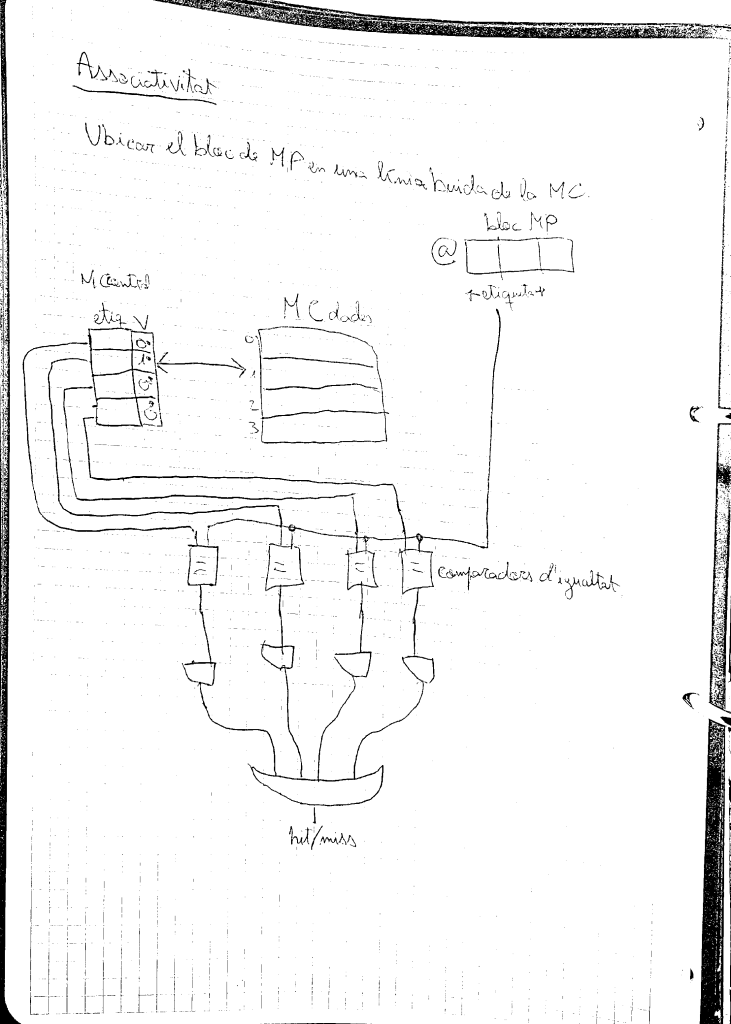 Associativitat
Ubicar el bloc de MP en una línia buida de la MC.
bloc MP
@
etiqueta
MC control
etiq V
0
1
0
0
MC dades
0
1
2
3
= = = =
comparadors d'igualtat
hit/miss